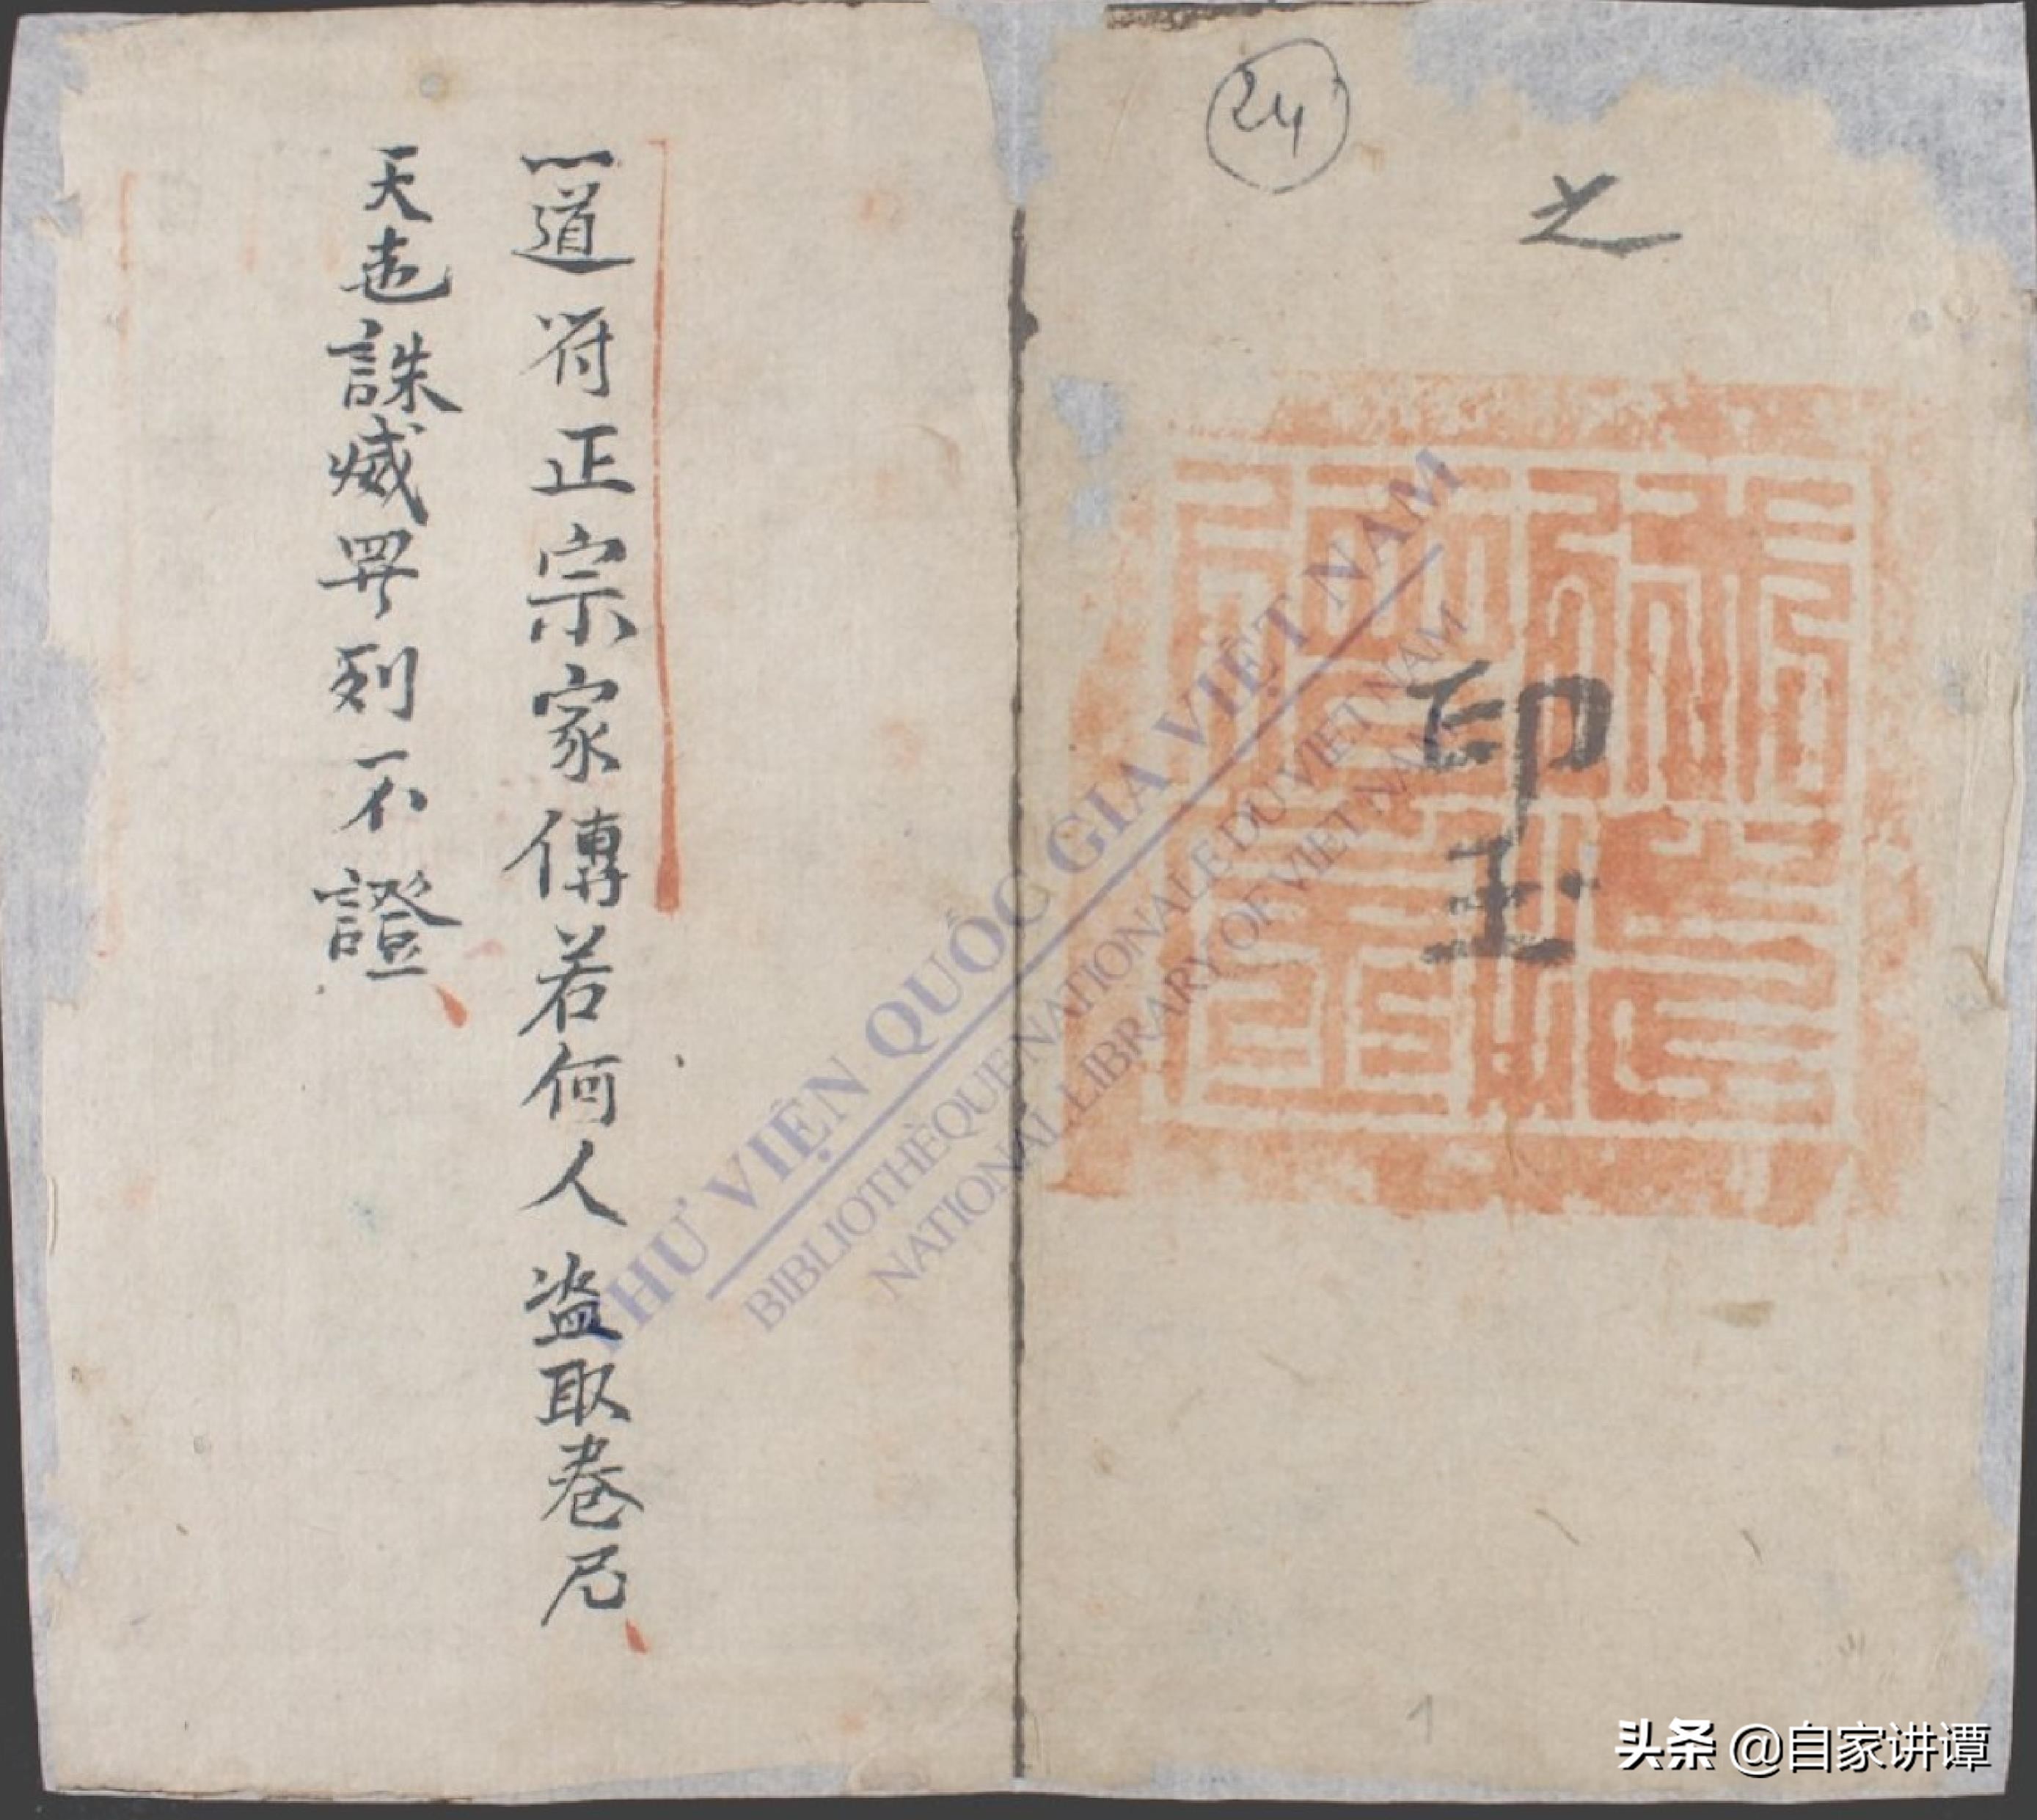 24
之
印
玉
一道符正宗家傳若何人盜取卷尺
天𠀧誅滅畧列不證
THƯ VIỆN QUỐC GIA VIỆT NAM
BIBLIOTHÈQUE NATIONALE DU VIET NAM
NATIONAL LIBRARY OF VIET NAM
1
头条 @自家讲谭